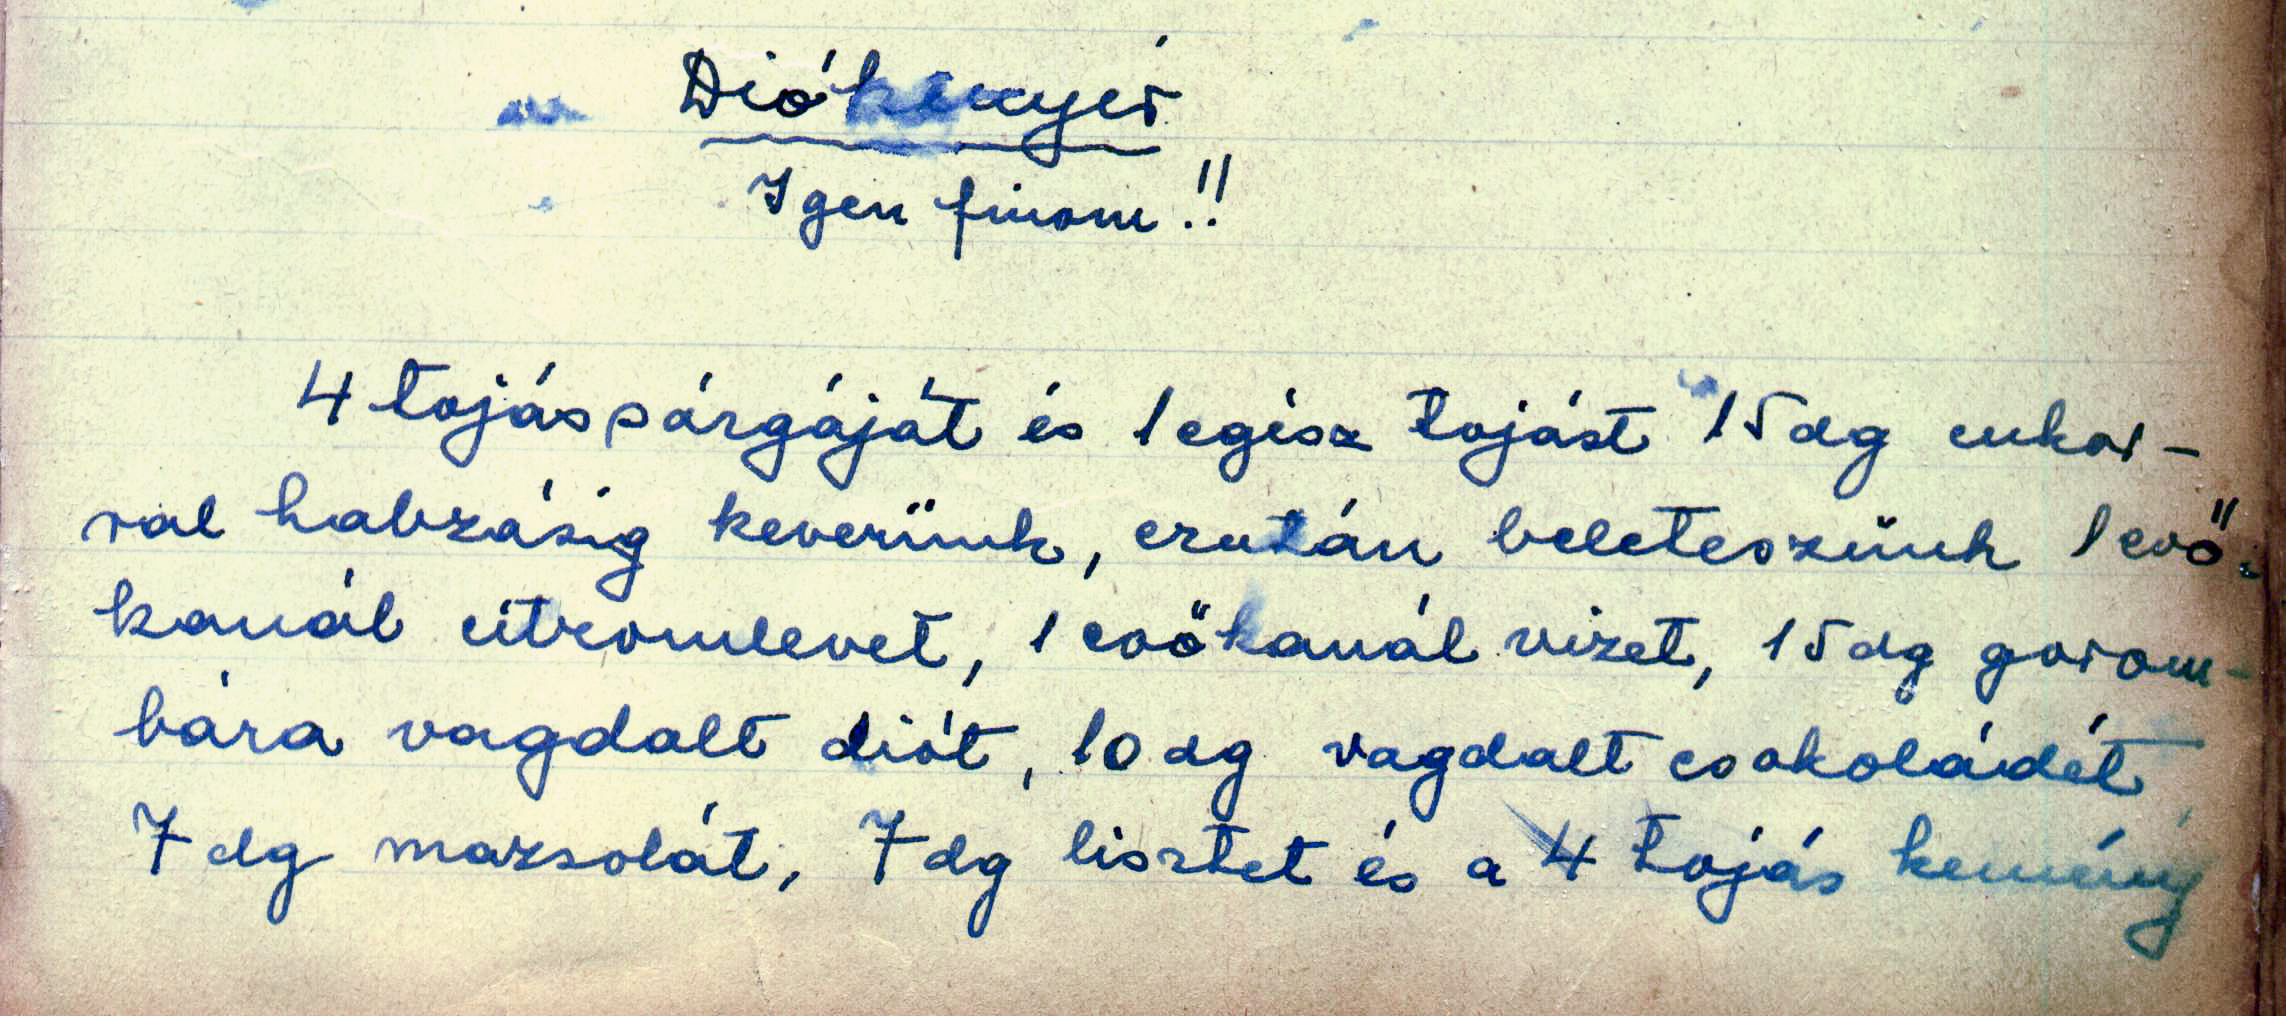 Diókenyér
Igen finom!!
4 tojás sárgáját és 1 egész tojást 15 dg cukor-
ral habzásig keverünk, ezután beleteszünk 1 evő-
kanál citromlevet, 1 evőkanál vizet, 15 dg gorom-
bára vagdalt diót, 10 dg vagdalt csokoládét,
7 dg mazsolát, 7 dg lisztet és a 4 tojás kemény